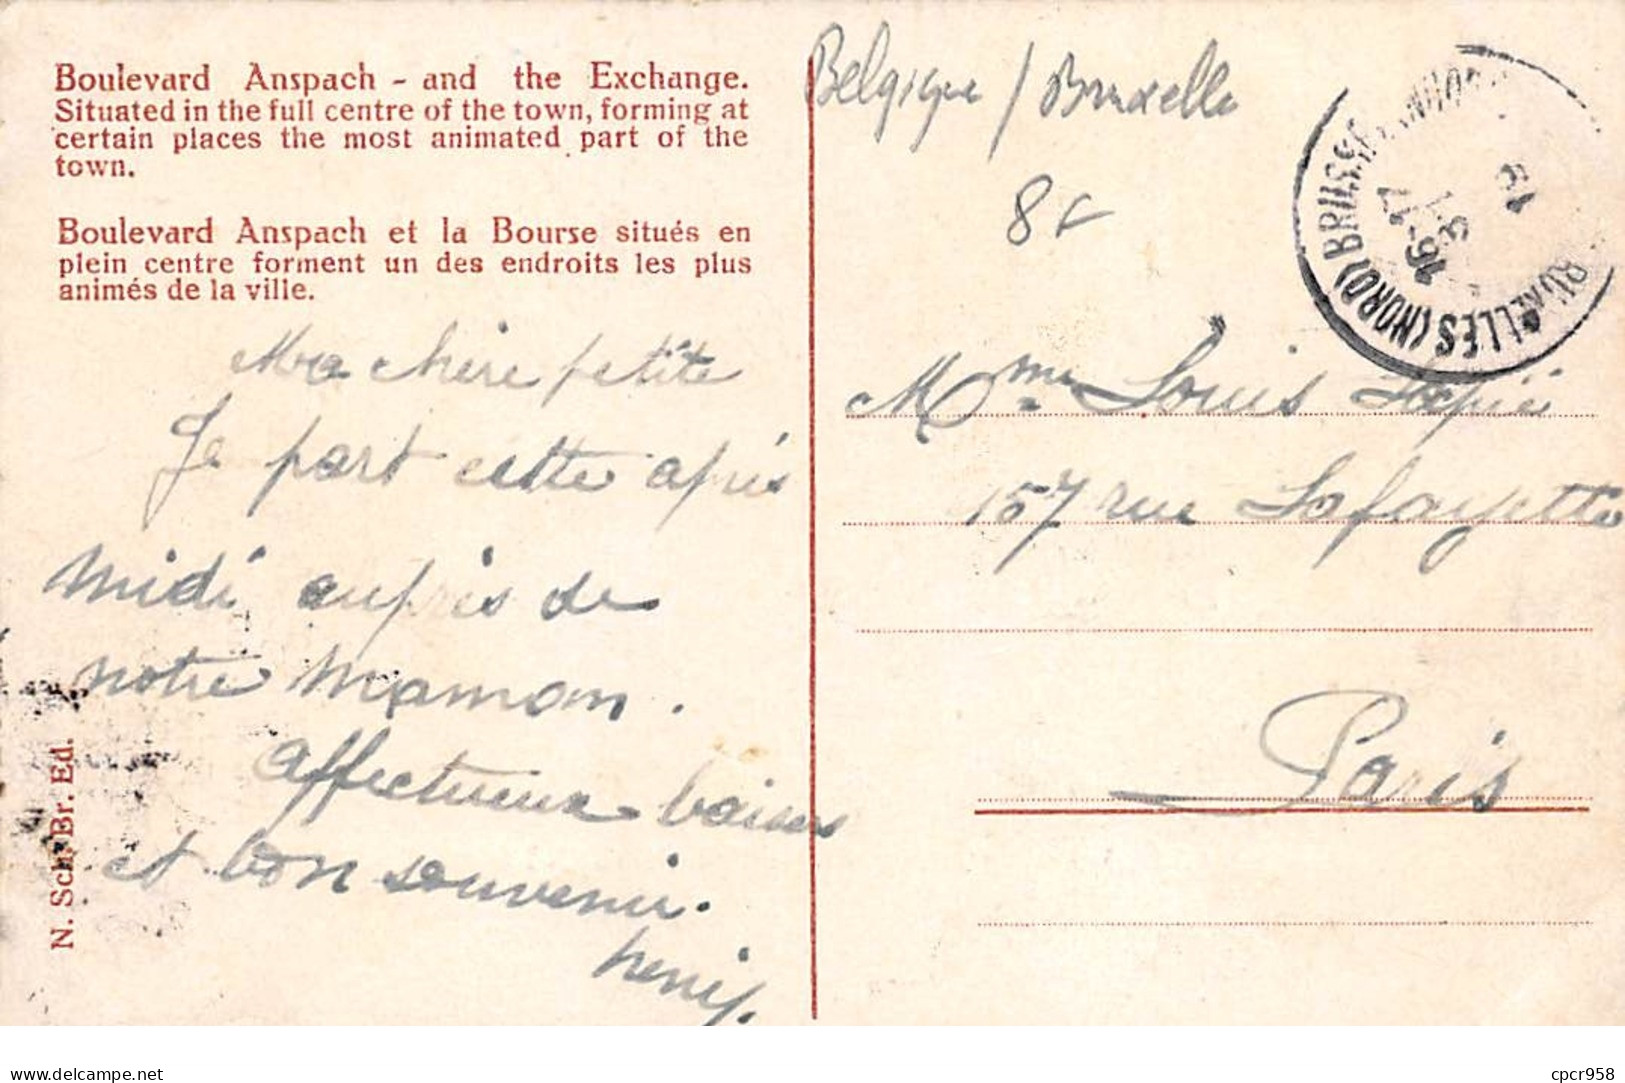 Boulevard Anspach - and the Exchange.
Situated in the full centre of the town, forming at
certain places the most animated part of the
town.
Boulevard Anspach et la Bourse situés en
plein centre forment un des endroits les plus
animés de la ville.
Ma chère petite
Je part cette après
midi auprès de
notre maman.
Affectueux baisers
et bon souvenir.
N. Sch. Br. Ed.
Belgique / Bruxelle
8
BRUXELLES (NORD) BRUSSEL
Mme Louis
157 rue Lafayette
Paris
www.delcampe.net
cpcr958